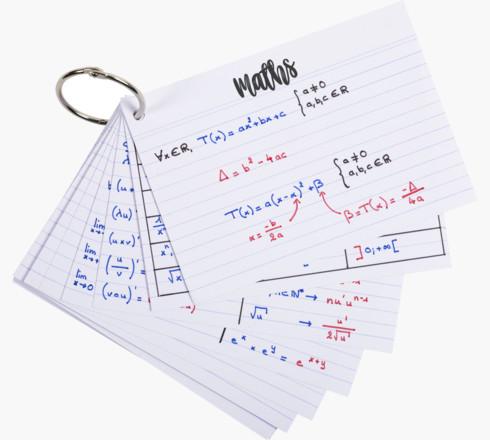 maths
∀x∈ℝ, T(x) = ax²+bx+c { a≠0 a,b,c∈ℝ
Δ = b² - 4ac
T(x) = a(x-α)²+β { a≠0 a,b,c∈ℝ
α = -b/2a
β = T(α) = -Δ/4a
]0;+∞[
(λu)
lim (u×v)'
lim (u/v)' =
lim x→0 (vou)' =
√x
→ nu'uⁿ⁻¹
√u → u'/2√u
eˣ × eʸ = eˣ⁺ʸ